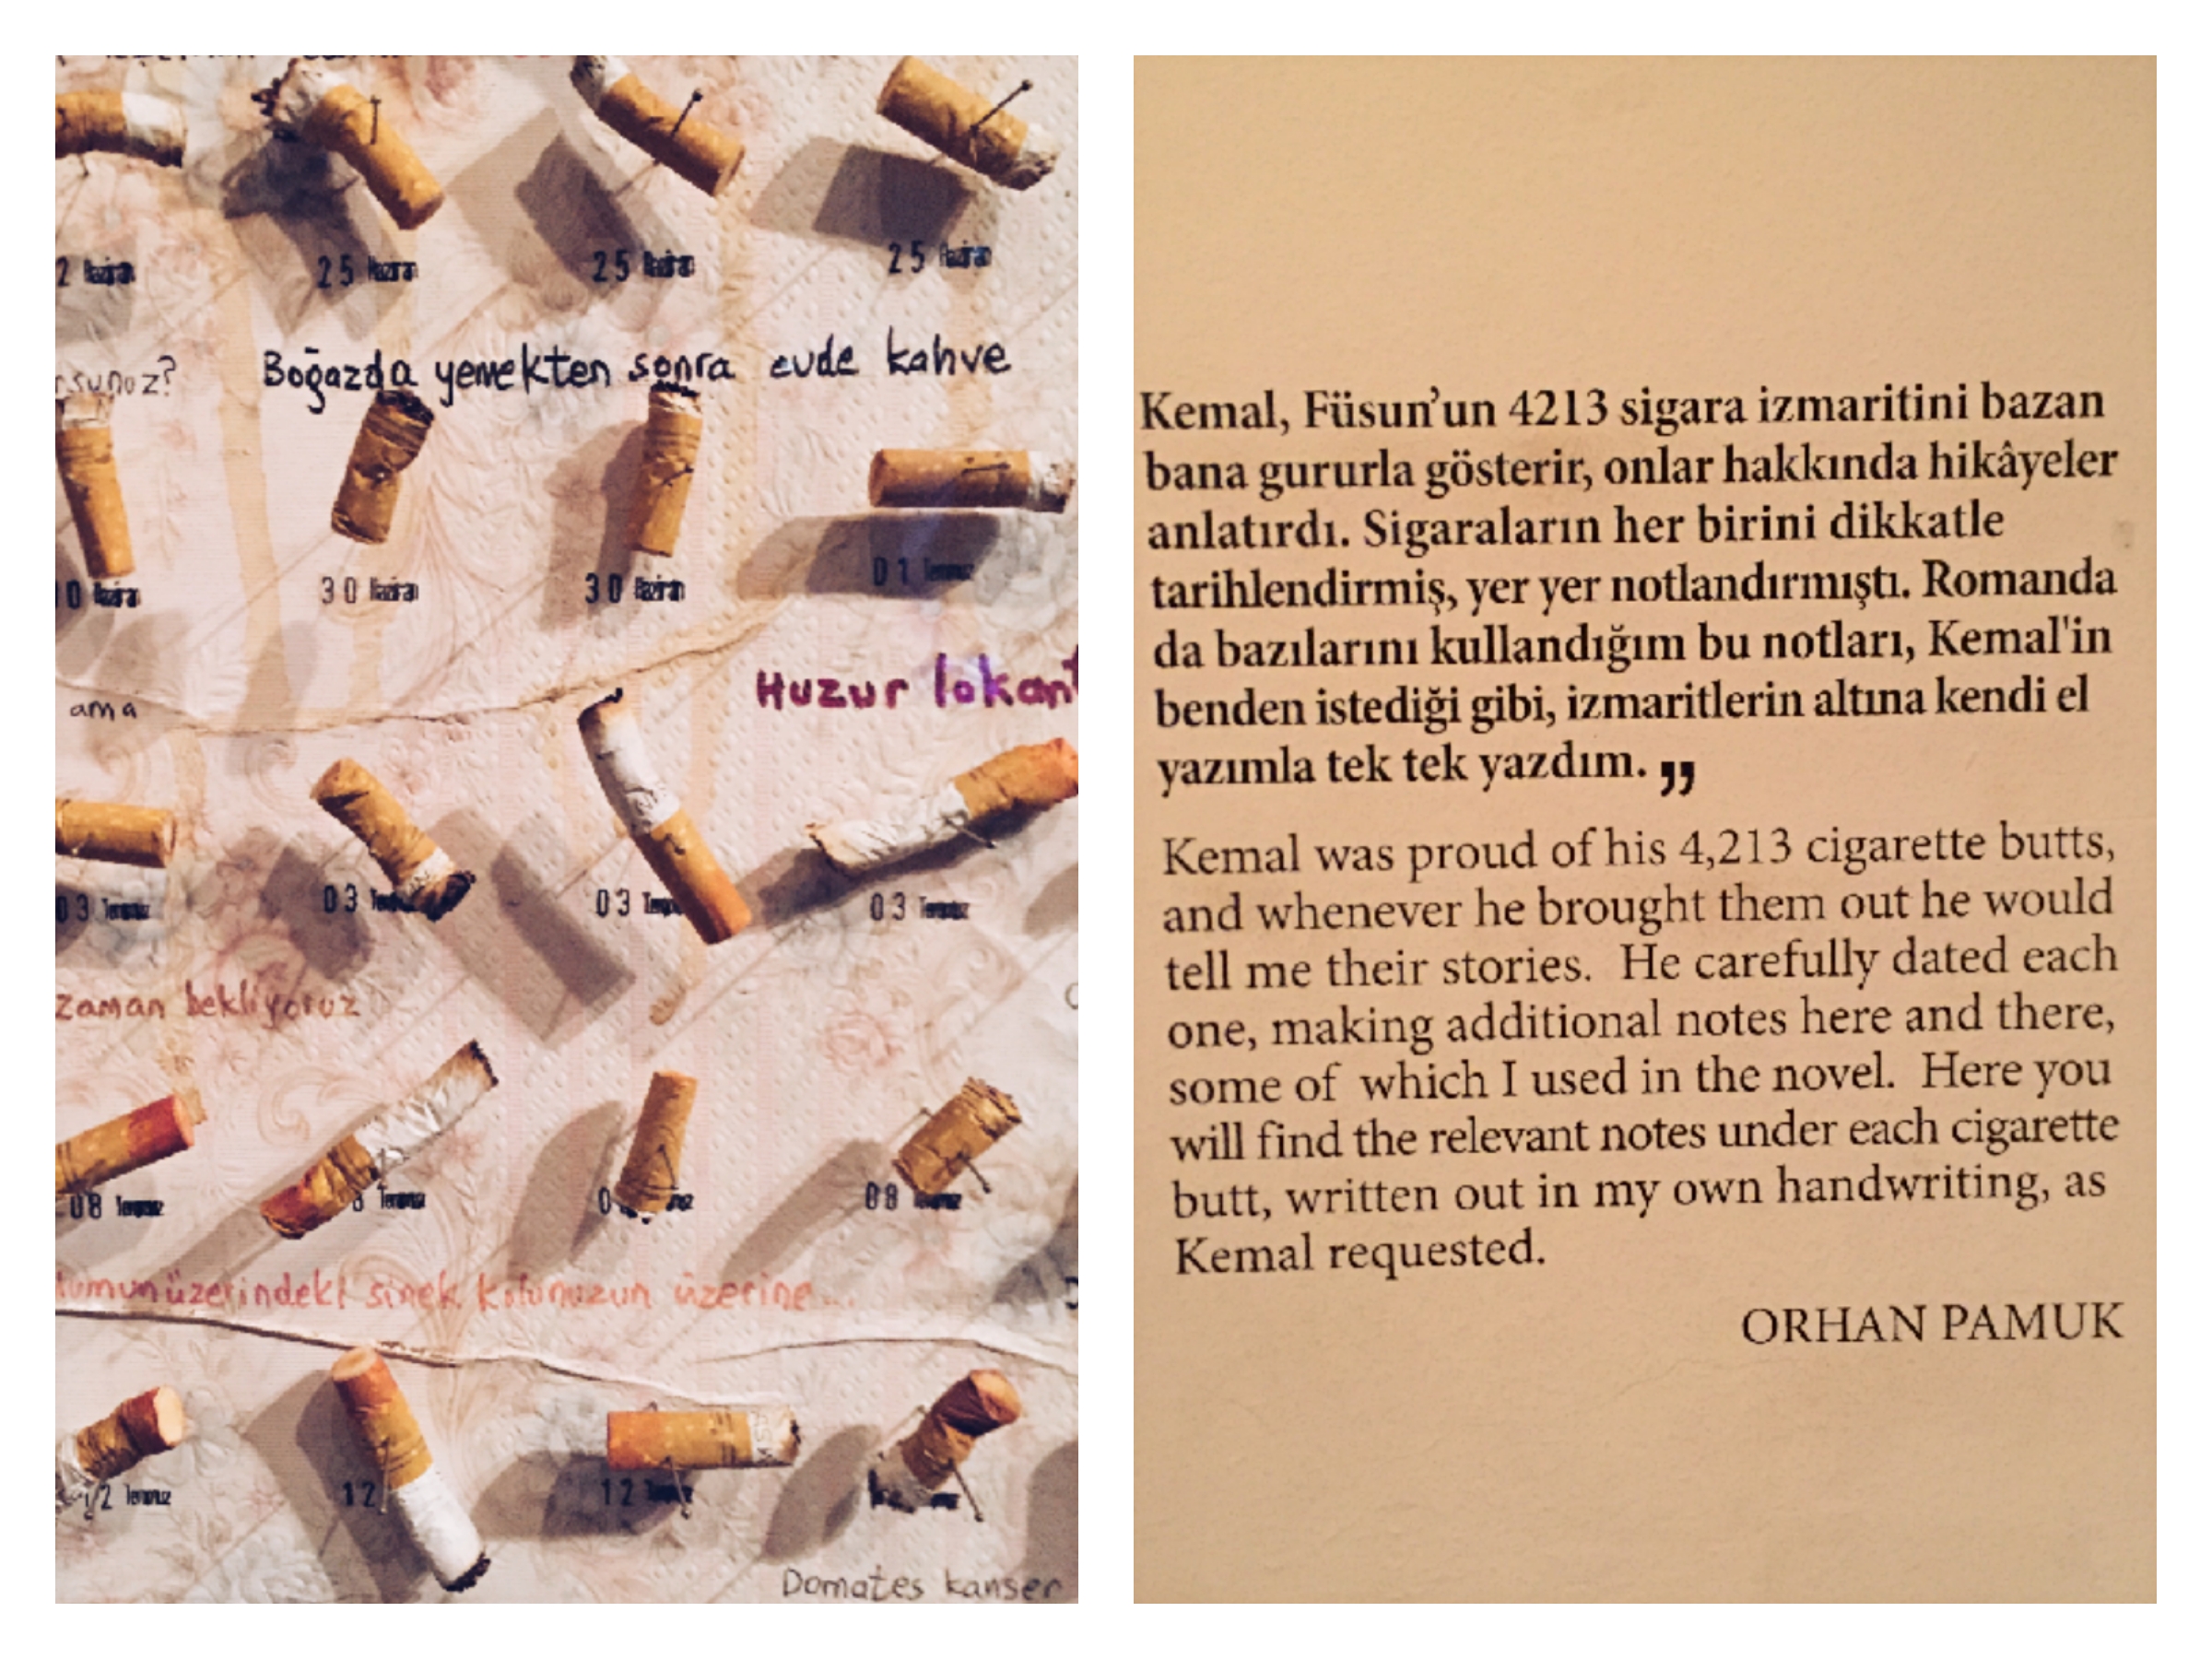 25 Haziran
25 Haziran
25 Haziran
Boğazda yemekten sonra evde kahve
30 Haziran
30 Haziran
01 Temmuz
ama
Huzur
03 Temmuz
03
03
03 Temmuz
zaman bekliyoruz
08 Temmuz
Temmuz
08
üzerindeki sinek kolunuzun üzerine...
12 Temmuz
12
12 Temmuz
Domates kanser
Kemal, Füsun’un 4213 sigara izmaritini bazan
bana gururla gösterir, onlar hakkında hikâyeler
anlatırdı. Sigaraların her birini dikkatle
tarihlendirmiş, yer yer notlandırmıştı. Romanda
da bazılarını kullandığım bu notları, Kemal'in
benden istediği gibi, izmaritlerin altına kendi el
yazımla tek tek yazdım. ”
Kemal was proud of his 4,213 cigarette butts,
and whenever he brought them out he would
tell me their stories. He carefully dated each
one, making additional notes here and there,
some of which I used in the novel. Here you
will find the relevant notes under each cigarette
butt, written out in my own handwriting, as
Kemal requested.
ORHAN PAMUK